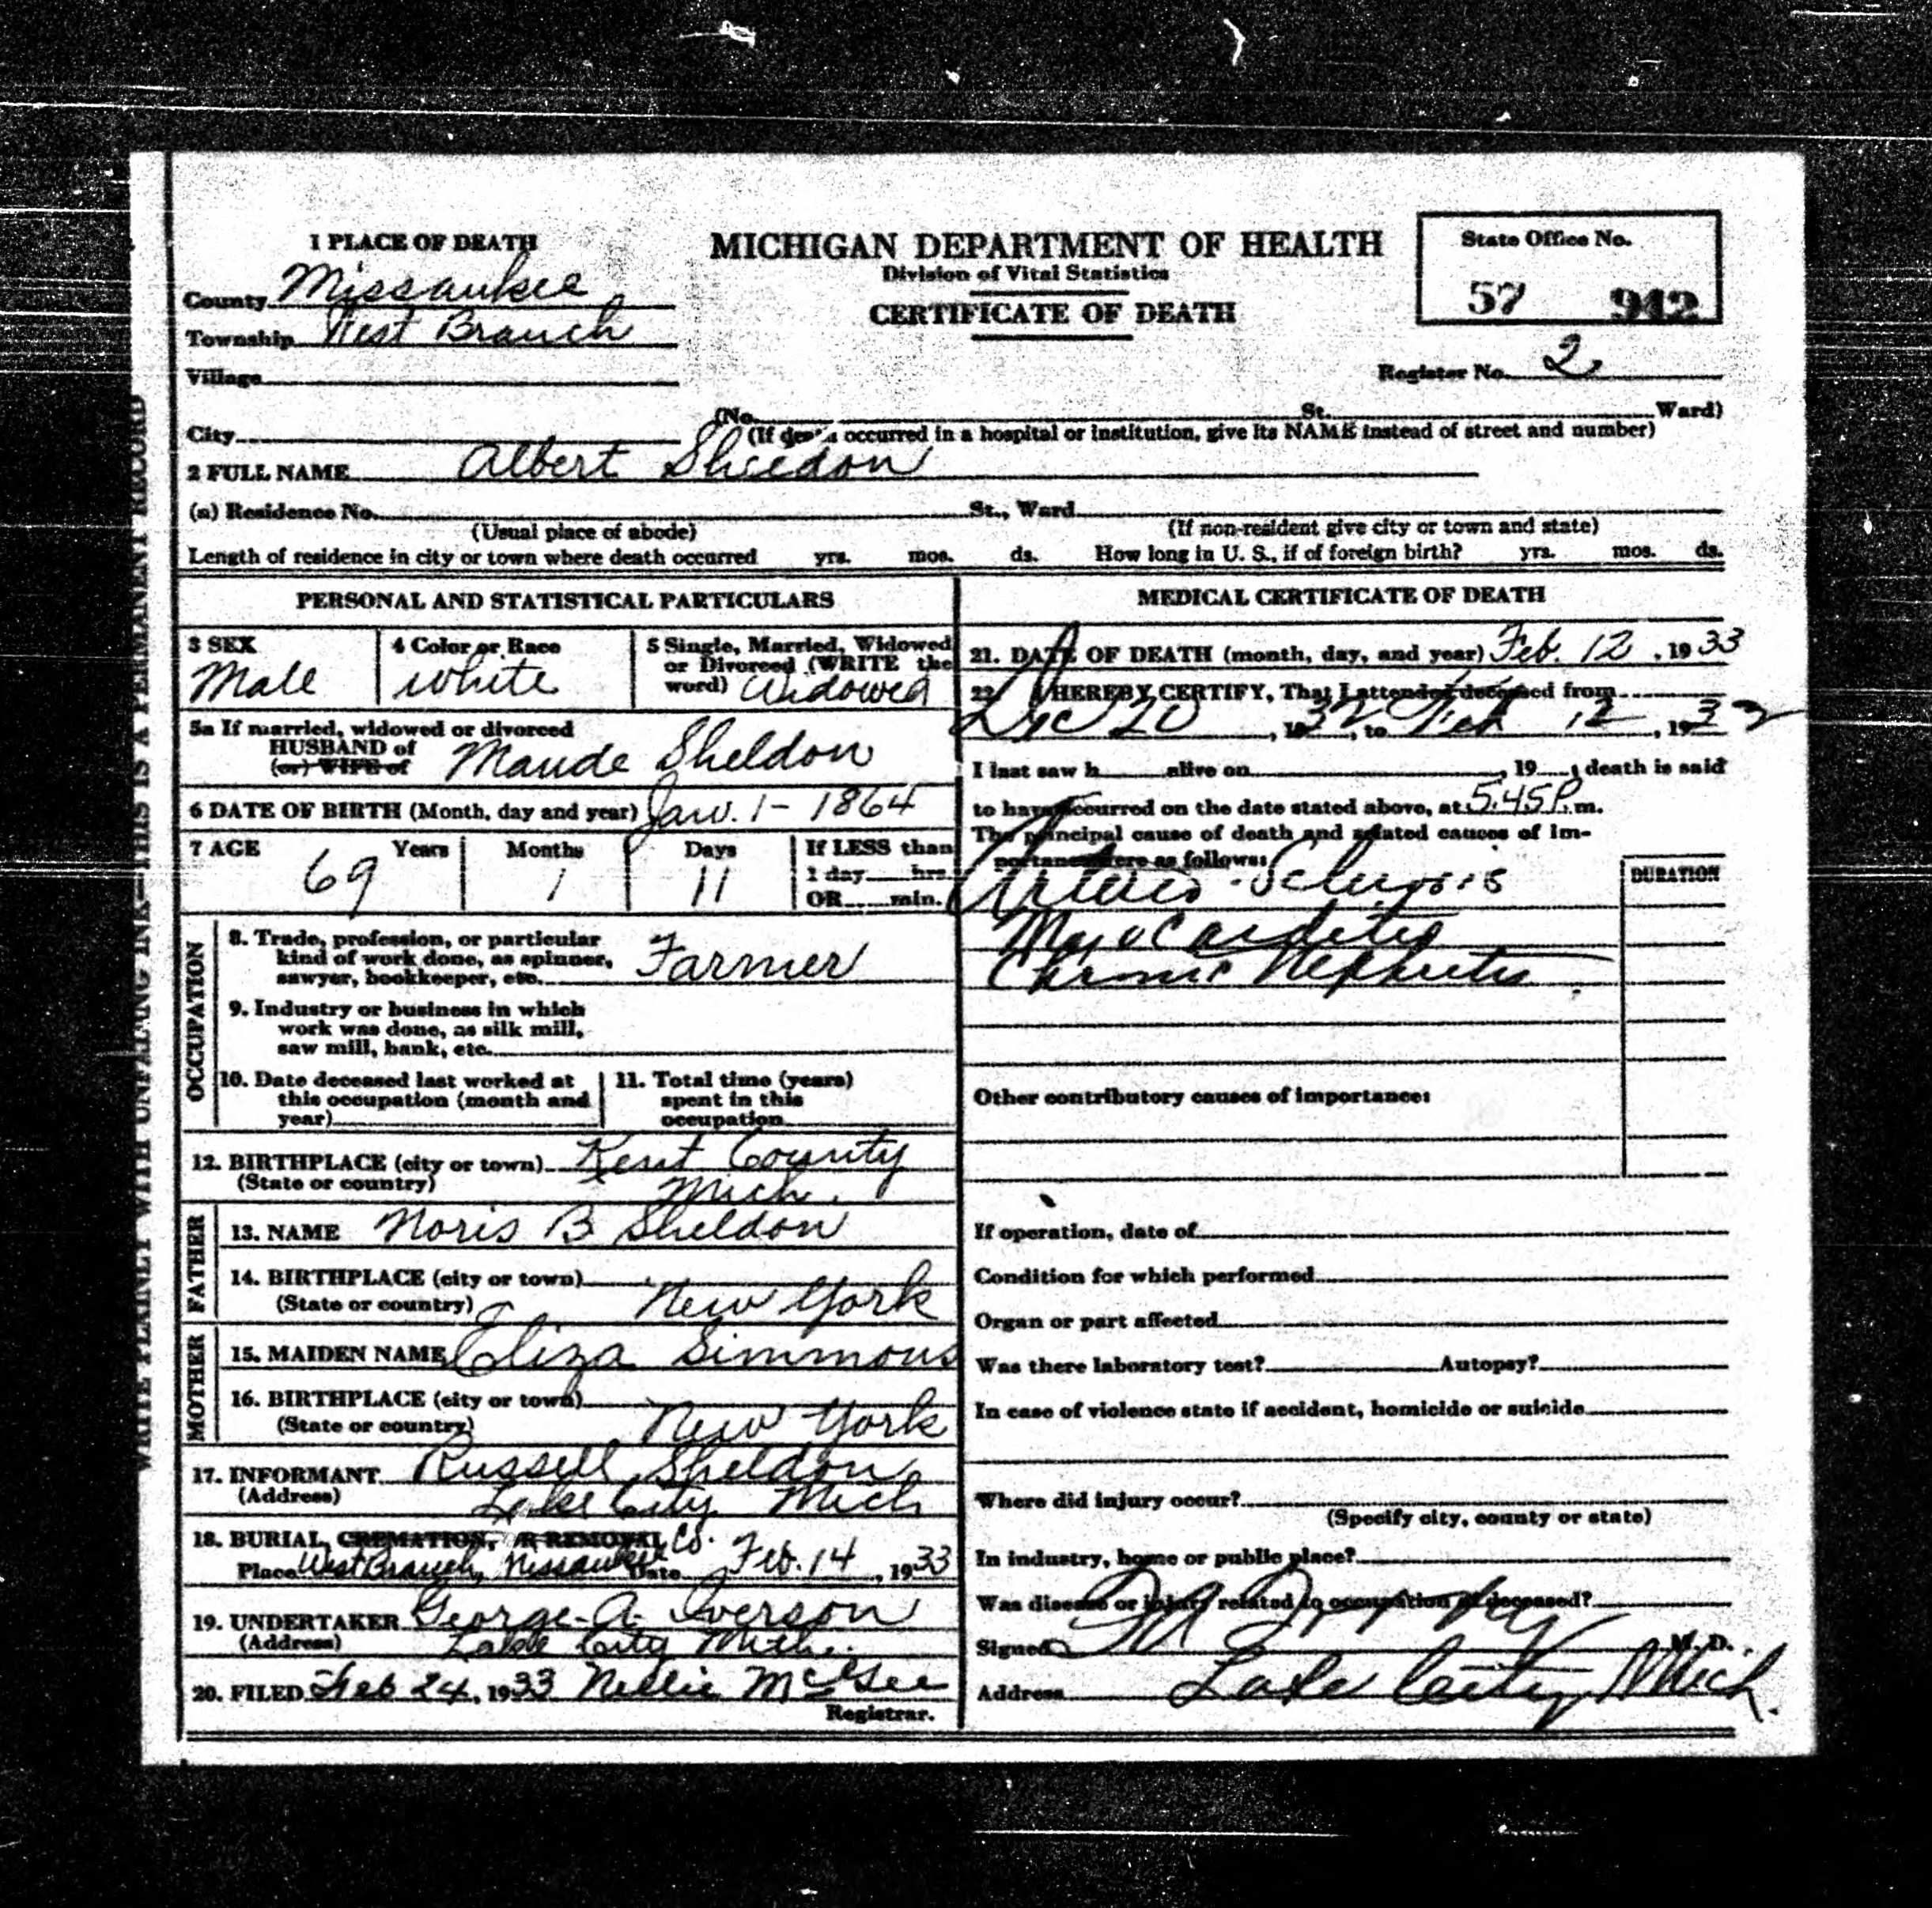 WRITE PLAINLY WITH UNFADING INK—THIS IS A PERMANENT RECORD
1 PLACE OF DEATH
County Missaukee
Township West Branch
Village
City
MICHIGAN DEPARTMENT OF HEALTH
Division of Vital Statistics
CERTIFICATE OF DEATH
State Office No.
57 942
Register No. 2
(No. St. Ward)
(If death occurred in a hospital or institution, give its NAME instead of street and number)
2 FULL NAME Albert Sheldon
(a) Residence No. St., Ward
(Usual place of abode) (If non-resident give city or town and state)
Length of residence in city or town where death occurred yrs. mos. ds. How long in U. S., if of foreign birth? yrs. mos. ds.
PERSONAL AND STATISTICAL PARTICULARS
3 SEX
Male
4 Color or Race
White
5 Single, Married, Widowed
or Divorced (WRITE the
word) Widowed
5a If married, widowed or divorced
HUSBAND of
(or) WIFE of
Maude Sheldon
6 DATE OF BIRTH (Month, day and year) Jan. 1 - 1864
7 AGE Years Months Days
69 1 11
If LESS than
1 day hrs.
OR min.
OCCUPATION
8. Trade, profession, or particular
kind of work done, as spinner,
sawyer, bookkeeper, etc. Farmer
9. Industry or business in which
work was done, as silk mill,
saw mill, bank, etc.
10. Date deceased last worked at
this occupation (month and
year)
11. Total time (years)
spent in this
occupation
12. BIRTHPLACE (city or town) Kent County
(State or country) Mich.
FATHER
13. NAME Noris B Sheldon
14. BIRTHPLACE (city or town)
(State or country) New York
MOTHER
15. MAIDEN NAME Eliza Simmons
16. BIRTHPLACE (city or town)
(State or country) New York
17. INFORMANT Russell Sheldon
(Address) Lake City Mich
18. BURIAL, CREMATION, OR REMOVAL Co.
Place West Branch, Missaukee Date Feb. 14, 1933
19. UNDERTAKER George A. Iverson
(Address) Lake City Mich.
20. FILED Feb 24, 1933 Nellie McGee
Registrar.
MEDICAL CERTIFICATE OF DEATH
21. DATE OF DEATH (month, day, and year) Feb. 12, 1933
22. I HEREBY CERTIFY, That I attended deceased from
Dec 20, 1932, to Feb 12, 193
I last saw h alive on , 19 , death is said
to have occurred on the date stated above, at 5.45 P. m.
The principal cause of death and related causes of im-
portance were as follows:
DURATION
Arterio-Sclerosis
Myocarditis
Chronic Nephritis
Other contributory causes of importance:
If operation, date of
Condition for which performed
Organ or part affected
Was there laboratory test? Autopsy?
In case of violence state if accident, homicide or suicide
Where did injury occur?
(Specify city, county or state)
In industry, home or public place?
Was disease or injury related to occupation of deceased?
Signed M. D.
Address Lake City Mich.